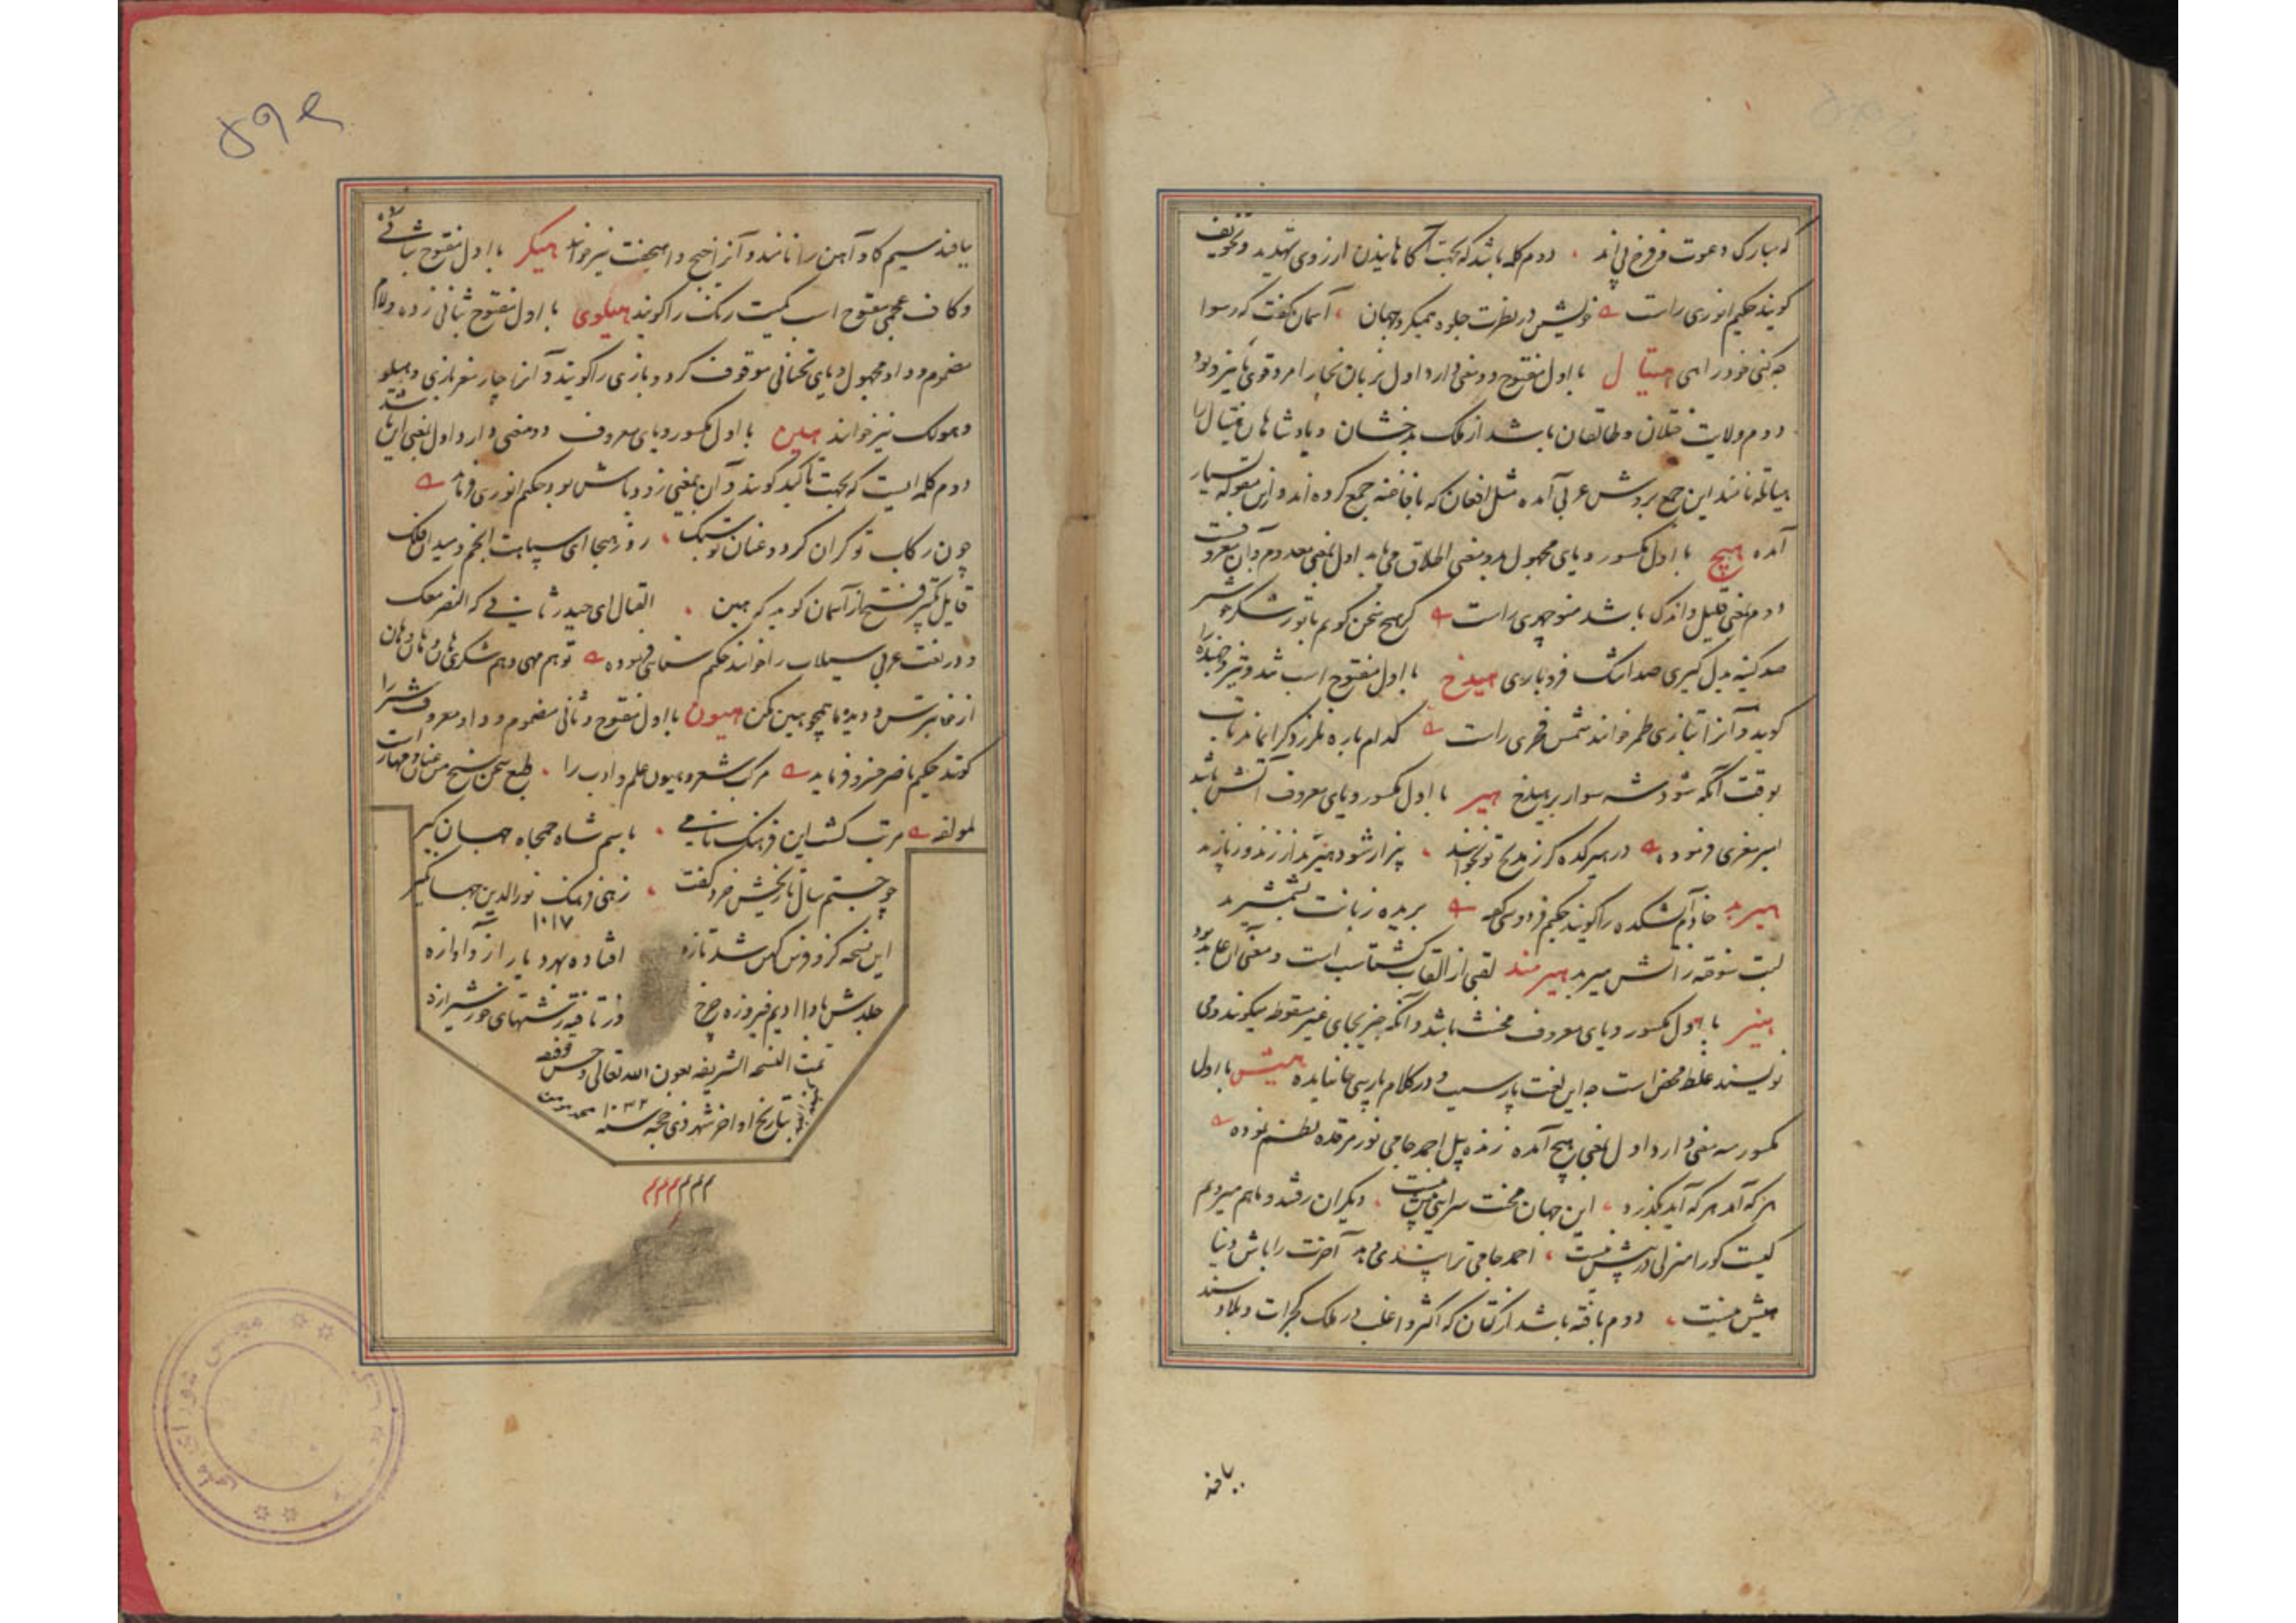 که مبارک دعوت و فرخ پی اند دوم کلمه باشد که بجهت آگاهانیدن از روی تهدید و تخویف
گویند حکیم انوری راست خویش در نظرت جلوه همیکرد جهان آسمان گفت که رسوا
چه کنی خود را هی هیتال با اول مفتوح دو معنی دارد اول بزبان بخارا مرد قوی
دوم ولایت ختلان و طالقان باشد از ملک بدخشان و پادشاهان هیتال را
هیاطله نامند این جمع بروش عربی آمده مثل افغان که با فاغنه جمع کرده اند و ازین مقوله بسیار
آمده هیچ با اول مکسور و یای مجهول بدو معنی اطلاق می یابد اول بمعنی معدوم و آن معروفست
دوم بمعنی قلیل و اندک باشد منوچهری راست گر هیچ سخن گویم با تو ز شکر خوشتر
صد کینه بدل گیری صد اشک فرو باری هیدخ با اول مفتوح اسب تند و تیز و جهنده را
گویند و آنرا بتازی طمر خوانند شمس فخری راست کدام باره نلرزد گرانمایه
بوقت آنکه شود شه سوار بر هیدخ هیر با اول مکسور و یای معروف آتش باشد
امیر معزی فرموده در هیرکده گر ز مدیح تو بخوانند بیزار شود هیربد از زند و ز پازند
هیربد خادم آتشکده را گویند حکیم فردوسی گفته بریده زبانت بشمشیر بد
لبت سوخته ز آتش هیربد هیرمند لقبی از القاب گشتاسب است و معنی آن عابد بود
هیز با اول مکسور و یای معروف مخنث باشد و آنکه حیز بحای غیر منقوطه میگویند و می
نویسند غلط محض است چه این لغت پارسیست و در کلام پارسی حا نیامده هیش با اول
مکسور سه معنی دارد اول بمعنی هیچ آمده ژنده پیل احمد جامی نور مرقده نظم نموده
هر که آمد هر که آید بگذرد این جهان محنت سرایی بیش نیست دیگران رفتند و ما هم میرویم
کیست کو را منزلی در پیش نیست احمد جامی ترا پندی دهد آخرت را باش دنیا
هیش نیست دوم بافته باشد از کتان که اکثر و اغلب در ملک گجرات و بلاد سند
یافند
۵۹۴
یافند سیم گاو آهن را نامند و آنرا خیخ و اهیخت نیز خوانند هیکر با اول مفتوح بثانی زده
و کاف عجمی مفتوح اسب کمیت رنگ را گویند هیلوی با اول مفتوح ثانی زده و لام
مضموم و واو مجهول و یای تحتانی موقوف گردو بازی را گویند و آنرا چار مغز بازی و هیلو
و هولک نیز خوانند هین با اول مکسور و یای معروف دو معنی دارد اول بمعنی این باشد
دوم کلمه ایست که بجهت تاکید گویند و آن بمعنی زود باش بود حکیم انوری فرماید
چون رکاب تو گران گردد و عنان تو سبک روز هیجا ای سپاهت انجم و میدان فلک
قایل تکبیر فتح از آسمان گوید که هین القتال ای حیدر ثانی که النصر معک
و در لغت عربی سیلاب را خوانند حکیم سنائی فرموده تو هم مهی و هم شکری هان و هان و هان
از خانه ترس و دیده ما همچو هین مکن هیون با اول مفتوح و ثانی مضموم و واو معروف شتر را
گویند حکیم ناصر خسرو فرماید مرکب شعر و هیون علم و ادب را طبع سخن سنج من عنان و مهار است
لمولفه مرتب گشت این فرهنگ نامی باسم شاه جمجاه جهانگیر
چو جستم سال تاریخش خرد گفت زهی فرهنگ نورالدین جهانگیر
۱۰۱۷
این نسخه کزو فرس کهن شد تازه افتاده بهر دیار ازو آوازه
جلدش بادا ادیم فیروزه چرخ وز تافته رشتهای خور شیرازه
تمت النسخه الشریفه بعون الله تعالی و حسن توفیقه
بتاریخ اواخر شهر ذی حجه سنه ۱۰۴۲
م م م م م م
مجلس شورای ملی